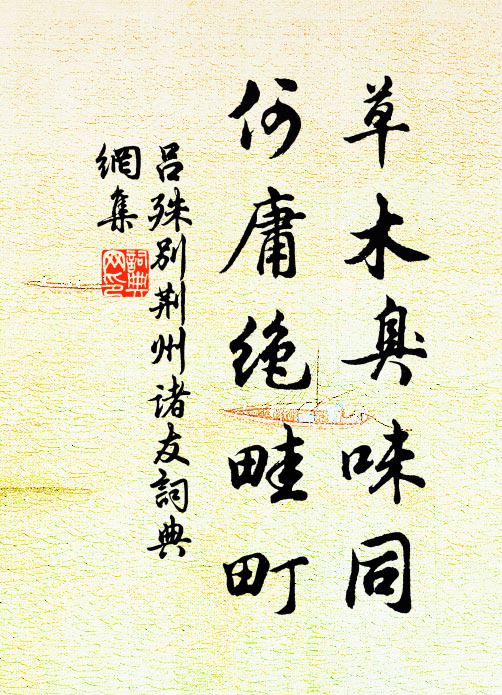 草木臭味同
何庸絶畦町
吕殊别荆州诸友詞典
網集
詞典
网印